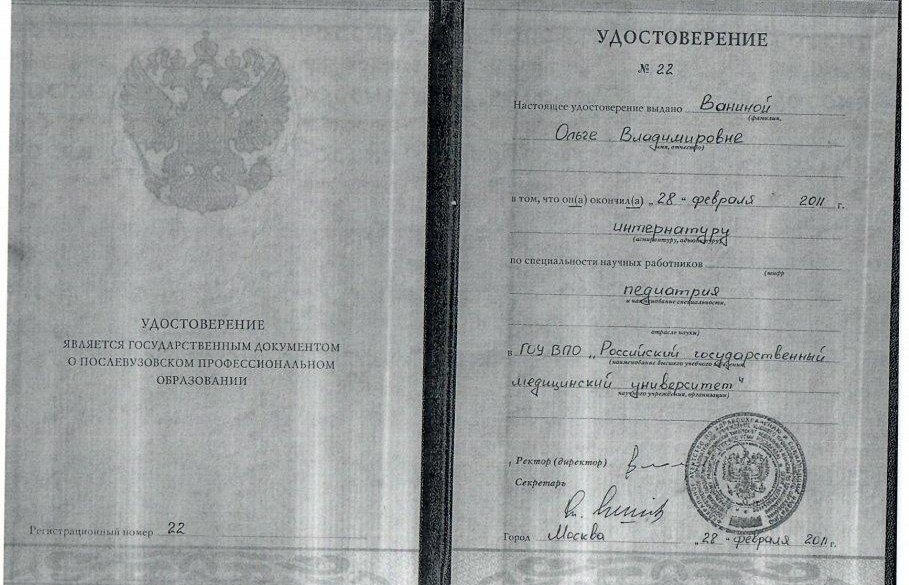 УДОСТОВЕРЕНИЕ
ЯВЛЯЕТСЯ ГОСУДАРСТВЕННЫМ ДОКУМЕНТОМ
О ПОСЛЕВУЗОВСКОМ ПРОФЕССИОНАЛЬНОМ
ОБРАЗОВАНИИ
Регистрационный номер 22
УДОСТОВЕРЕНИЕ
№ 22
Настоящее удостоверение выдано Ваниной
(фамилия,
Ольге Владимировне
имя, отчество)
в том, что он(а) окончил(а) „28“ февраля 2011 г.
интернатуру
(аспирантуру, адъюнктуру)
по специальности научных работников
(шифр
педиатрия
и наименование специальности,
отрасль науки)
в ГОУ ВПО „Российский государственный
(наименование высшего учебного заведения,
медицинский университет“
научного учреждения, организации)
Ректор (директор)
Секретарь
Город Москва „28“ февраля 2011 г.